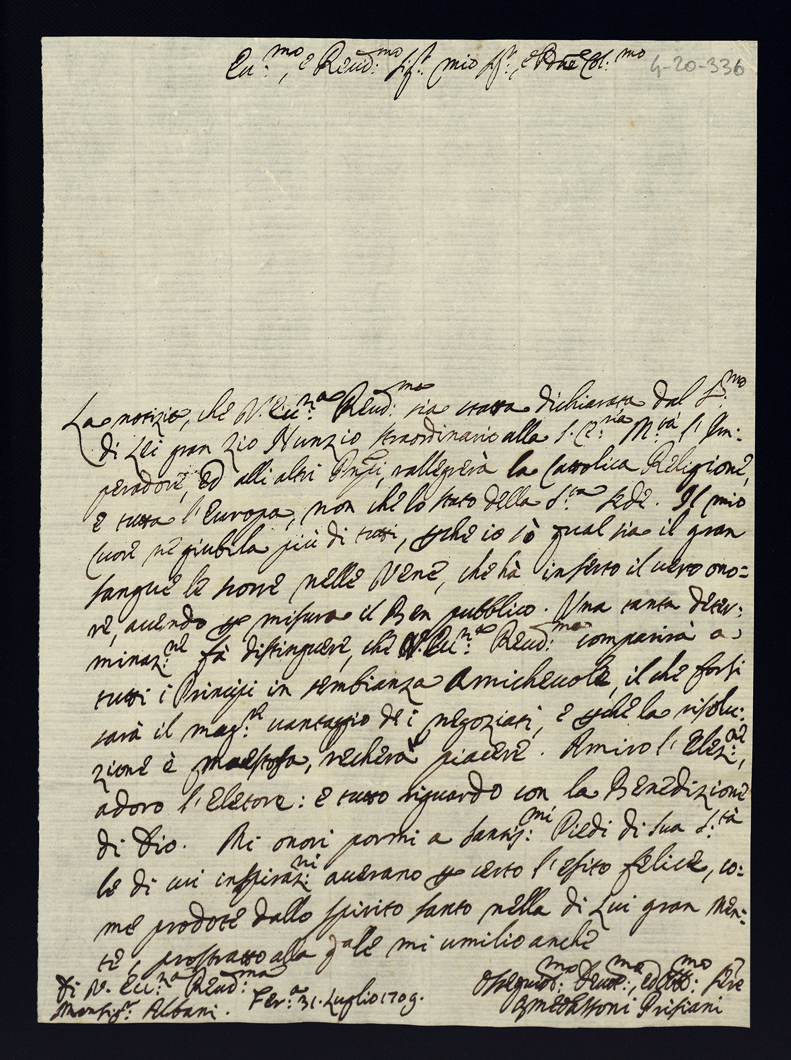 Ecc:mo, e Reud:mo Sig:r mio Sig:r, e Pdne Col:mo
4-20-336
La notizia, che V. Ecc:za Reud:ma sia stata dichiarata dal S:mo
di Lei gran zio Nunzio straordinario alla S. C:ria M:tà l'Im:
peradore, ed alli altri Pnpi, rallegrerà la Cattolica Religione,
e tutta l'Europa, non che lo stato della S:ta Sede. Il mio
Cuore ne giubila più di tutti, pche io sò qual sia il gran
sangue le scorre nelle Vene, che hà inserto il uero ono=
re, auendo p misura il Ben pubblico. Una tanta deter:
minaz:ne fà distinguere, che V. Ecc:za Reud:ma comparirà a
tutti i Principi in sembianza Amicheuole, il che forsi
sarà il mag:re uantaggio dei negoziati, e pche la risolu:
zione è maestosa, recherà piacere. Amiro l'Elez:ne,
adoro l'Eletore: e tutto riguardo con la Benedizione
di Dio. Mi onori pormi a Santis:mi Piedi di Sua S:tà
le di cui inspiraz:ni auerano p certo l'esito felice, co:
me prodote dallo Spirito Santo nella di Lui gran Men:
te, prostratto alla quale mi umilio anche
Di V. Ecc:za Reud:ma
Monsig:r Albani. Fer:a 31. Luglio 1709.
Ossequid:mo Deuot:mo, ed Obb:mo Sre
Prisiani